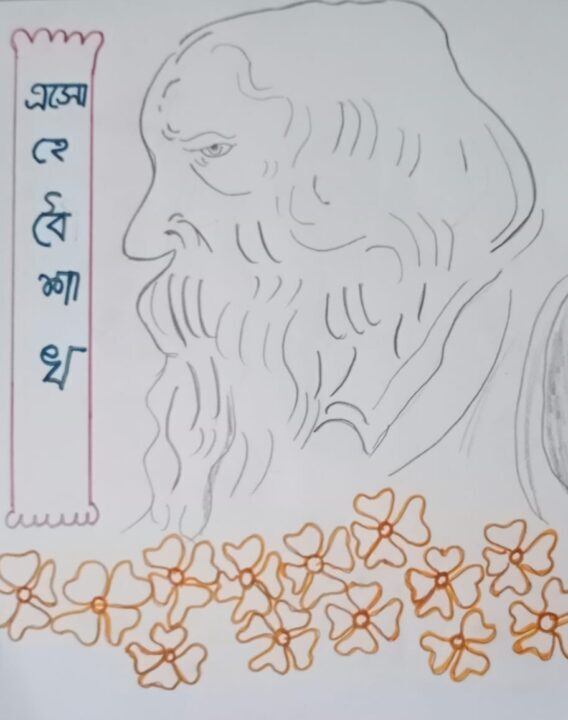 এসো
হে
বৈ
শা
খ